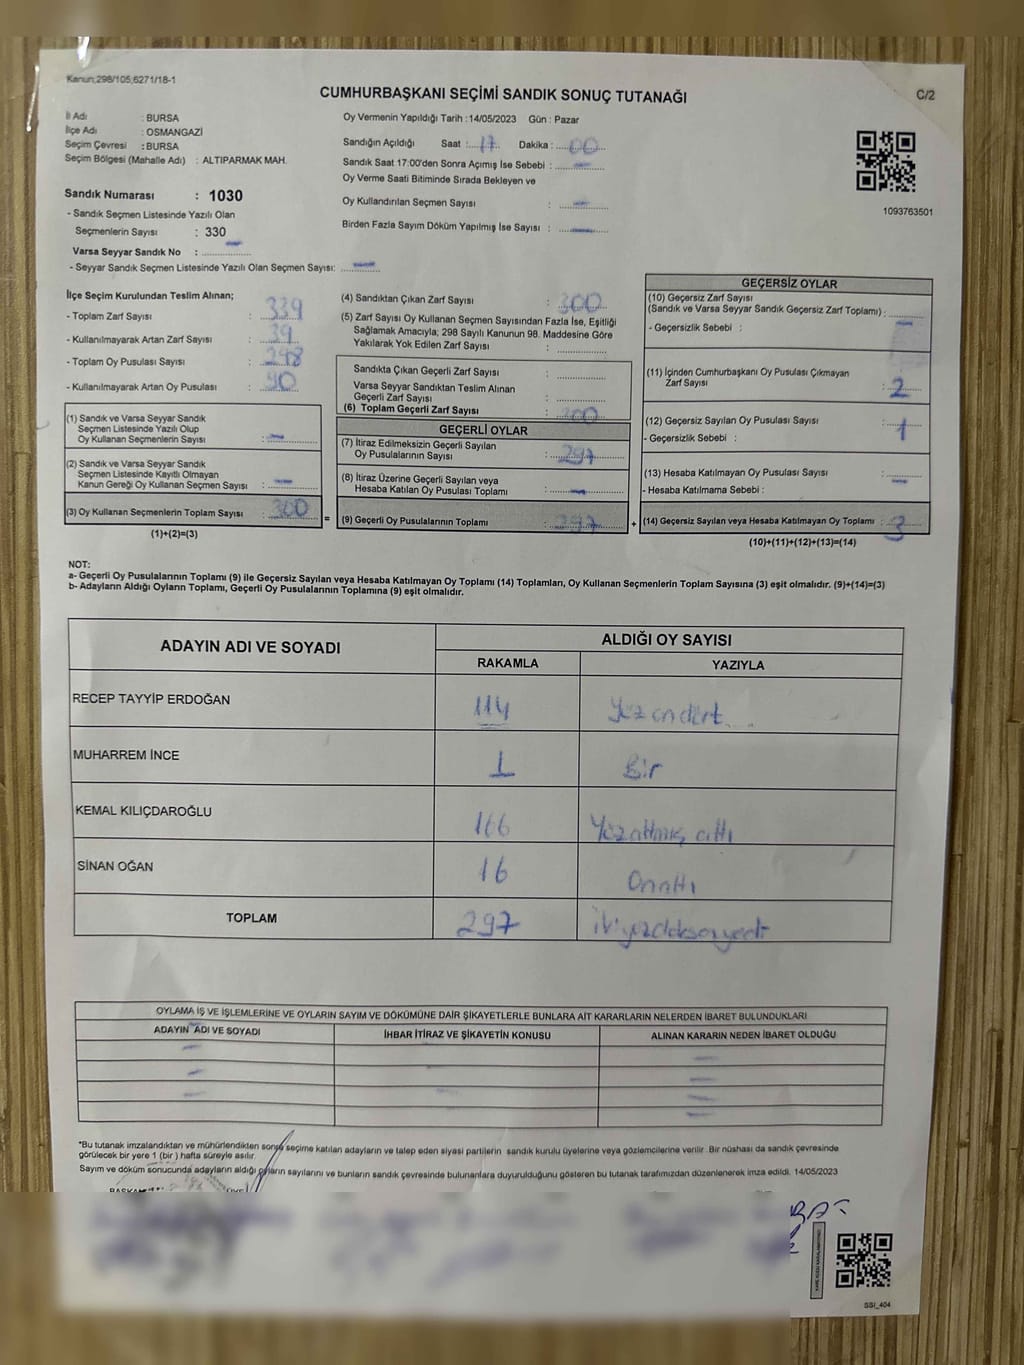 Kanun;298/105;6271/18-1
CUMHURBAŞKANI SEÇİMİ SANDIK SONUÇ TUTANAĞI
C/2
İl Adı : BURSA
İlçe Adı : OSMANGAZİ
Seçim Çevresi : BURSA
Seçim Bölgesi (Mahalle Adı) : ALTIPARMAK MAH.
Sandık Numarası : 1030
- Sandık Seçmen Listesinde Yazılı Olan
Seçmenlerin Sayısı : 330
Varsa Seyyar Sandık No : —
- Seyyar Sandık Seçmen Listesinde Yazılı Olan Seçmen Sayısı: —
Oy Vermenin Yapıldığı Tarih :14/05/2023 Gün : Pazar
Sandığın Açıldığı Saat : 17 Dakika : 00
Sandık Saat 17:00'den Sonra Açımış İse Sebebi : —
Oy Verme Saati Bitiminde Sırada Bekleyen ve
Oy Kullandırılan Seçmen Sayısı : —
Birden Fazla Sayım Döküm Yapılmış İse Sayısı : —
1093763501
İlçe Seçim Kurulundan Teslim Alınan;
- Toplam Zarf Sayısı : 339
- Kullanılmayarak Artan Zarf Sayısı : 39
- Toplam Oy Pusulası Sayısı :
- Kullanılmayarak Artan Oy Pusulası :
(1) Sandık ve Varsa Seyyar Sandık
Seçmen Listesinde Yazılı Olup
Oy Kullanan Seçmenlerin Sayısı : —
(2) Sandık ve Varsa Seyyar Sandık
Seçmen Listesinde Kayıtlı Olmayan
Kanun Gereği Oy Kullanan Seçmen Sayısı : —
(3) Oy Kullanan Seçmenlerin Toplam Sayısı : 300
(1)+(2)=(3)
=
(4) Sandıktan Çıkan Zarf Sayısı : 300
(5) Zarf Sayısı Oy Kullanan Seçmen Sayısından Fazla İse, Eşitliği
Sağlamak Amacıyla; 298 Sayılı Kanunun 98. Maddesine Göre
Yakılarak Yok Edilen Zarf Sayısı :
Sandıkta Çıkan Geçerli Zarf Sayısı :
Varsa Seyyar Sandıktan Teslim Alınan
Geçerli Zarf Sayısı :
(6) Toplam Geçerli Zarf Sayısı : 300
GEÇERLİ OYLAR
(7) İtiraz Edilmeksizin Geçerli Sayılan
Oy Pusulalarının Sayısı : 297
(8) İtiraz Üzerine Geçerli Sayılan veya
Hesaba Katılan Oy Pusulası Toplamı : —
(9) Geçerli Oy Pusulalarının Toplamı : 297
+
GEÇERSİZ OYLAR
(10) Geçersiz Zarf Sayısı
(Sandık ve Varsa Seyyar Sandık Geçersiz Zarf Toplamı) : —
- Geçersizlik Sebebi :
(11) İçinden Cumhurbaşkanı Oy Pusulası Çıkmayan
Zarf Sayısı : 2
(12) Geçersiz Sayılan Oy Pusulası Sayısı : 1
- Geçersizlik Sebebi :
(13) Hesaba Katılmayan Oy Pusulası Sayısı : —
- Hesaba Katılmama Sebebi :
(14) Geçersiz Sayılan veya Hesaba Katılmayan Oy Toplamı : 3
(10)+(11)+(12)+(13)=(14)
NOT:
a- Geçerli Oy Pusulalarının Toplamı (9) ile Geçersiz Sayılan veya Hesaba Katılmayan Oy Toplamı (14) Toplamları, Oy Kullanan Seçmenlerin Toplam Sayısına (3) eşit olmalıdır. (9)+(14)=(3)
b- Adayların Aldığı Oyların Toplamı, Geçerli Oy Pusulalarının Toplamına (9) eşit olmalıdır.
ADAYIN ADI VE SOYADI
ALDIĞI OY SAYISI
RAKAMLA YAZIYLA
RECEP TAYYİP ERDOĞAN 114 Yüz ondört
MUHARREM İNCE 1 Bir
KEMAL KILIÇDAROĞLU 166 Yüzaltmış altı
SİNAN OĞAN 16 Onaltı
TOPLAM 297 ikiyüzdoksanyedi
OYLAMA İŞ VE İŞLEMLERİNE VE OYLARIN SAYIM VE DÖKÜMÜNE DAİR ŞİKAYETLERLE BUNLARA AİT KARARLARIN NELERDEN İBARET BULUNDUKLARI
ADAYIN ADI VE SOYADI İHBAR İTİRAZ VE ŞİKAYETİN KONUSU ALINAN KARARIN NEDEN İBARET OLDUĞU
*Bu tutanak imzalandıktan ve mühürlendikten sonra seçime katılan adayların ve talep eden siyasi partilerin sandık kurulu üyelerine veya gözlemcilerine verilir. Bir nüshası da sandık çevresinde
görülecek bir yere 1 (bir ) hafta süreyle asılır.
Sayım ve döküm sonucunda adayların aldığı oyların sayılarını ve bunların sandık çevresinde bulunanlara duyurulduğunu gösteren bu tutanak tarafımızdan düzenlenerek imza edildi. 14/05/2023
SSI_404